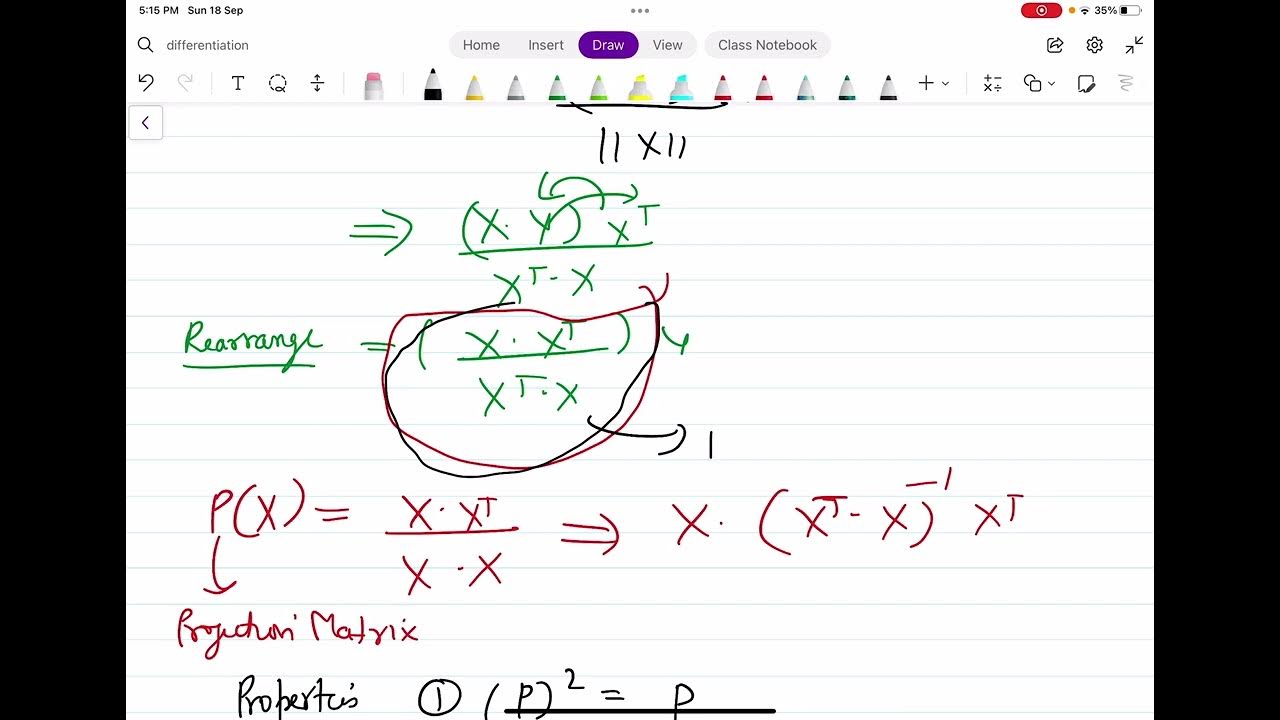 5:15 PM Sun 18 Sep
35%
differentiation
Home Insert Draw View Class Notebook
|| X ||
⇒ (X · Y) X^T
X^T · X
Rearrange = ( X · X^T ) Y
X^T · X
1
P(X) = X · X^T ⇒ X · (X^T · X)^-1 X^T
X · X
Projection Matrix
Properties ① (P)^2 = P